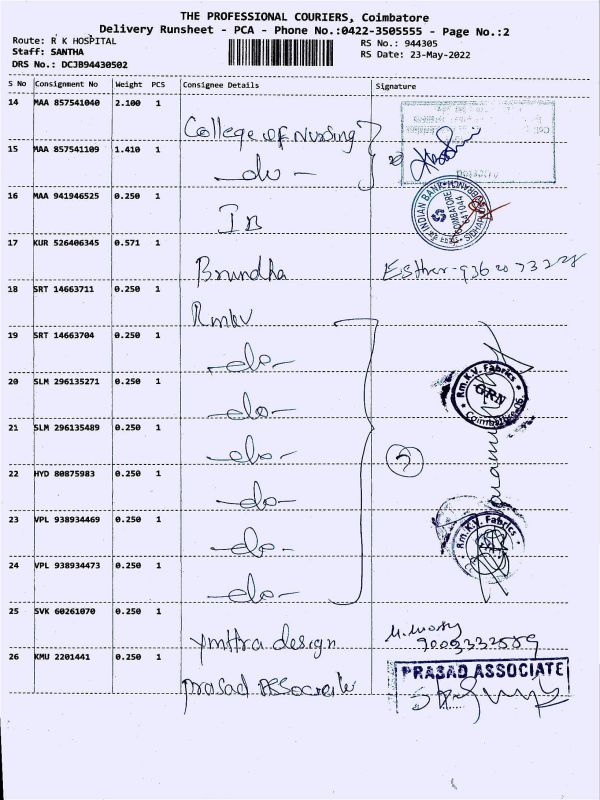 THE PROFESSIONAL COURIERS, Coimbatore
Delivery Runsheet - PCA - Phone No.:0422-3505555 - Page No.:2
Route: R K HOSPITAL
Staff: SANTHA
DRS No.: DCJB94430502
RS No.: 944305
RS Date: 23-May-2022
S No Consignment No Weight PCS Consignee Details Signature
14 MAA 857541040 2.100 1 College of Nursing
15 MAA 857541109 1.410 1 -do-
16 MAA 941946525 0.250 1 IB
INDIAN BANK
COIMBATORE
641044
17 KUR 526406345 0.571 1 Brundha Esther-
18 SRT 14663711 0.250 1 Rmkv
19 SRT 14663704 0.250 1 -do-
20 SLM 296135271 0.250 1 -do-
Rm.K.V. Fabrics
GRN
21 SLM 296135489 0.250 1 -do-
22 HYD 80875983 0.250 1 -do-
23 VPL 938934469 0.250 1 -do-
Rm.K.V. Fabrics
24 VPL 938934473 0.250 1 -do-
25 SVK 60261070 0.250 1 design
26 KMU 2201441 0.250 1 Prasad Associate
PRASAD ASSOCIATE